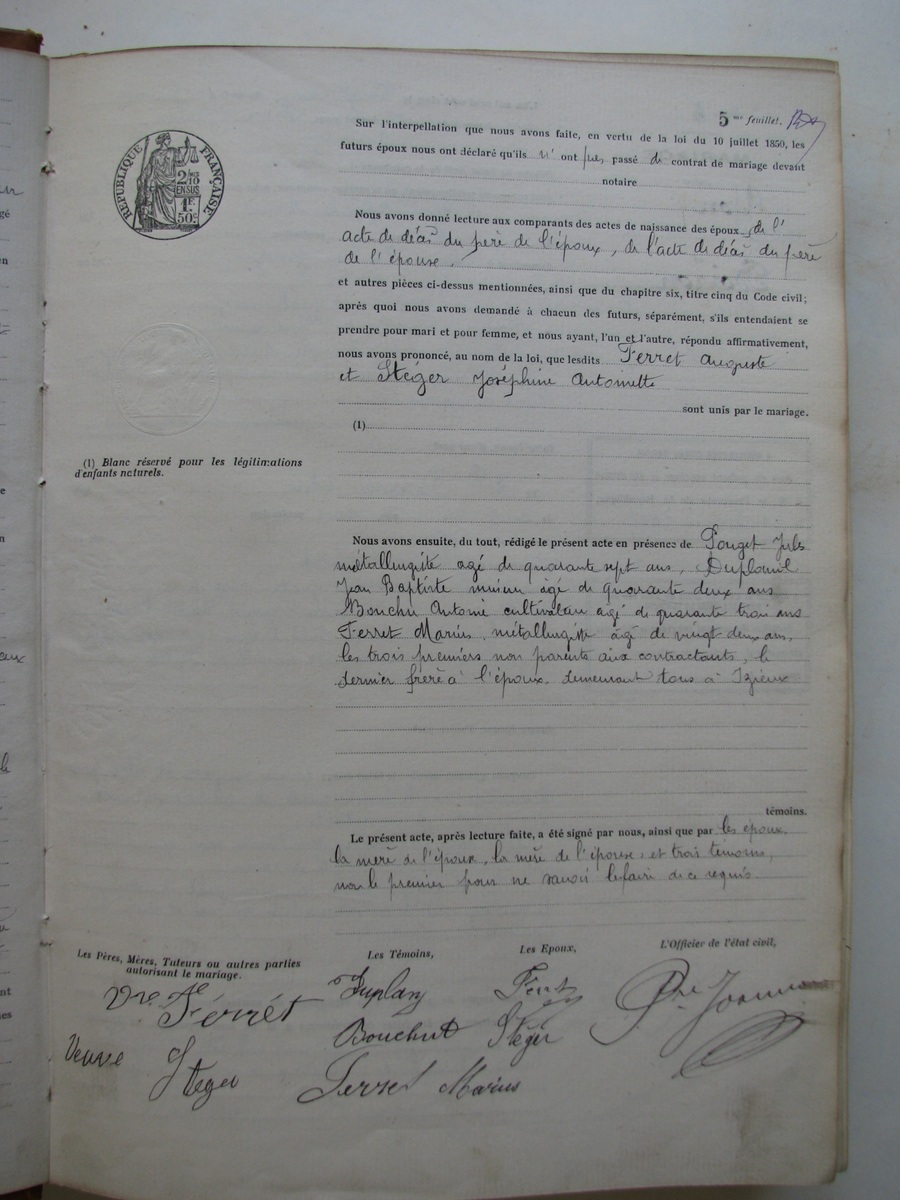 5me feuillet.
RÉPUBLIQUE FRANÇAISE
2/10
EN SUS
1F.
50c.
Sur l'interpellation que nous avons faite, en vertu de la loi du 10 juillet 1850, les
futurs époux nous ont déclaré qu'ils n' ont pas passé de contrat de mariage devant
notaire
Nous avons donné lecture aux comparants des actes de naissance des époux, de l'
acte de décès du père de l'époux, de l'acte de décès du père
de l'épouse.
et autres pièces ci-dessus mentionnées, ainsi que du chapitre six, titre cinq du Code civil;
après quoi nous avons demandé à chacun des futurs, séparément, s'ils entendaient se
prendre pour mari et pour femme, et nous ayant, l'un et l'autre, répondu affirmativement,
nous avons prononcé, au nom de la loi, que lesdits Ferret Auguste
et Stéger Joséphine Antoinette
sont unis par le mariage.
(1)
(1) Blanc réservé pour les légitimations
d'enfants naturels.
Nous avons ensuite, du tout, rédigé le présent acte en présence de Pouget Jules
métallurgiste agé de quarante sept ans,
Jean Baptiste mineur âgé de quarante deux ans
Bouchut Antoine cultivateur âgé de quarante trois ans
Ferret Marius, métallurgiste âgé de vingt deux ans,
les trois premiers non parents aux contractants, le
dernier frère à l'époux, demeurant tous à Izieux
témoins.
Le présent acte, après lecture faite, a été signé par nous, ainsi que par les époux,
la mère de l'époux, la mère de l'épouse, et trois témoins,
non le premier pour ne savoir le faire de ce requis.
Les Pères, Mères, Tuteurs ou autres parties
autorisant le mariage.
Les Témoins,
Les Epoux,
L'Officier de l'état civil,
Vve Ferrét
Ferret
Bouchut
Stéger
Veuve Steger
Ferret Marius